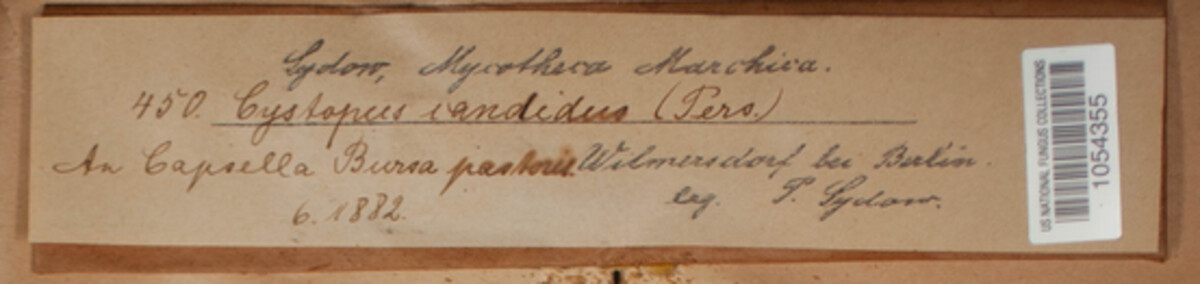 Sydow, Mycotheca Marchica.
450. Cystopus candidus (Pers.)
An Capsella Bursa pastoris. Wilmersdorf bei Berlin.
6. 1882.
leg. P. Sydow.
US NATIONAL FUNGUS COLLECTIONS
1054355